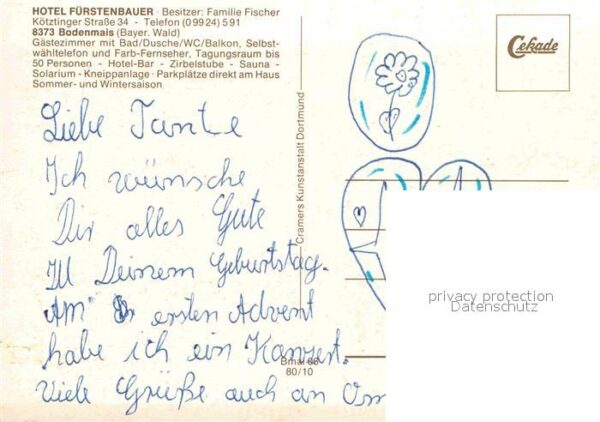 HOTEL FÜRSTENBAUER · Besitzer: Familie Fischer
Kötztinger Straße 34 - Telefon (09924) 591
8373 Bodenmais (Bayer. Wald)
Gästezimmer mit Bad/Dusche/WC/Balkon, Selbst-
wähltelefon und Farb-Fernseher, Tagungsraum bis
50 Personen - Hotel-Bar - Zirbelstube - Sauna -
Solarium - Kneippanlage · Parkplätze direkt am Haus
Sommer- und Wintersaison
Cekade
Cramers Kunstanstalt Dortmund
Liebe Tante
Ich wünsche
Dir alles Gute
zu Deinem Geburtstag.
Am ersten Advent
habe ich ein Konzert.
Viele Grüße auch an
Bmai 66
80/10
privacy protection
Datenschutz